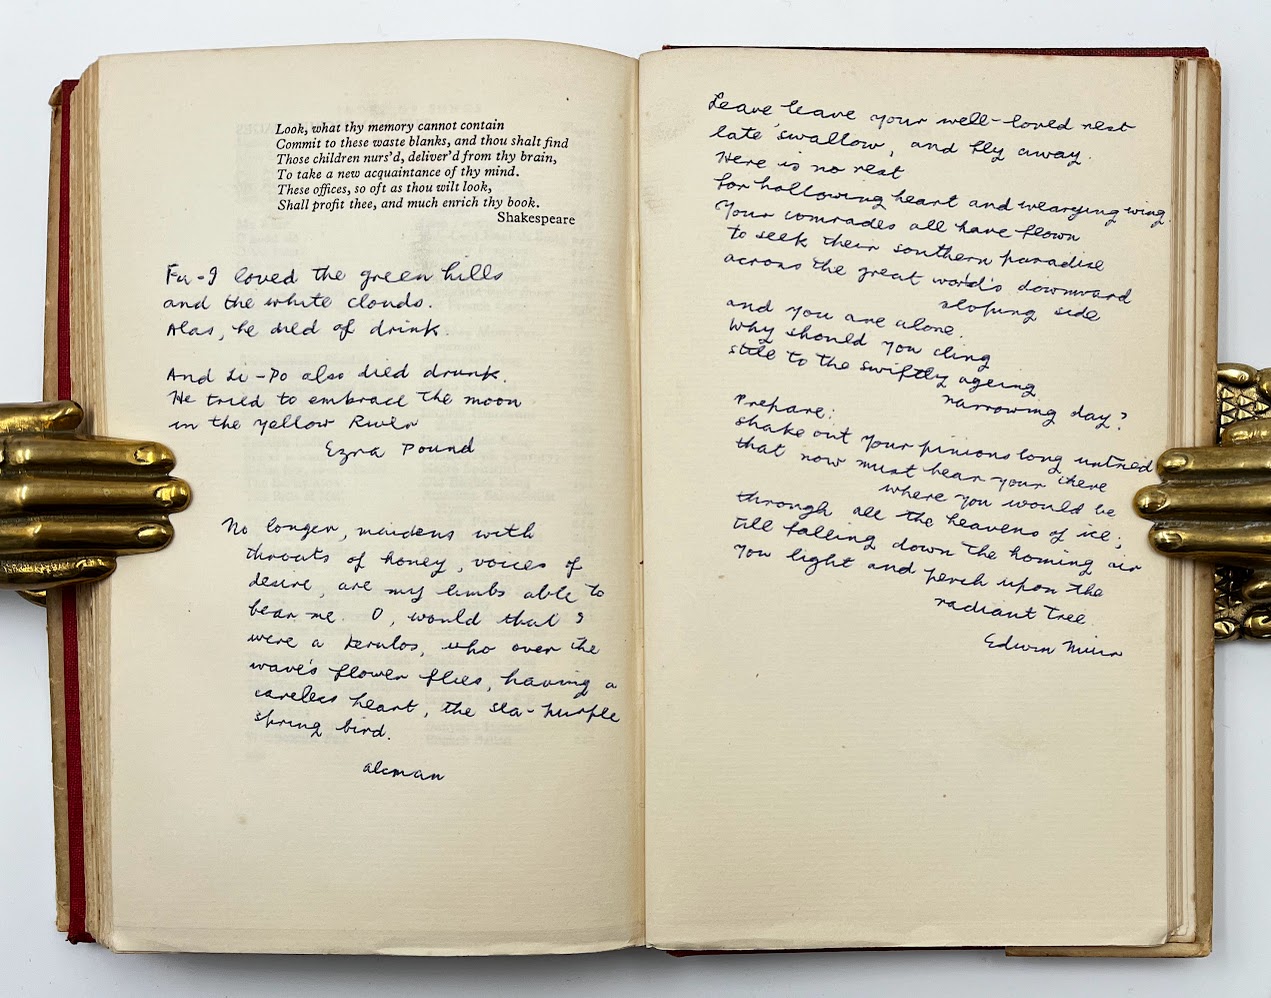 Look, what thy memory cannot contain
Commit to these waste blanks, and thou shalt find
Those children nurs'd, deliver'd from thy brain,
To take a new acquaintance of thy mind.
These offices, so oft as thou wilt look,
Shall profit thee, and much enrich thy book.
Shakespeare
Fu-I loved the green hills
and the white clouds.
Alas, he died of drink.
And Li-Po also died drunk.
He tried to embrace the moon
in the yellow River
Ezra Pound
No longer, maidens with
throats of honey, voices of
desire, are my limbs able to
bear me. O, would that I
were a kerulos, who over the
wave's flower flies, having a
careless heart, the sea-purple
spring bird.
alcman
Leave leave your well-loved nest
late swallow, and fly away.
Here is no rest
for hollowing heart and wearying wing.
Your comrades all have flown
to seek their southern paradise
across the great world's downward
sloping side
and you are alone.
Why should you cling
still to the swiftly ageing
narrowing day?
Prepare;
shake out your pinions long untried
that now must bear your there
where you would be
through all the heavens of ice;
till falling down the homing air
You light and perch upon the
radiant tree.
Edwin Muir